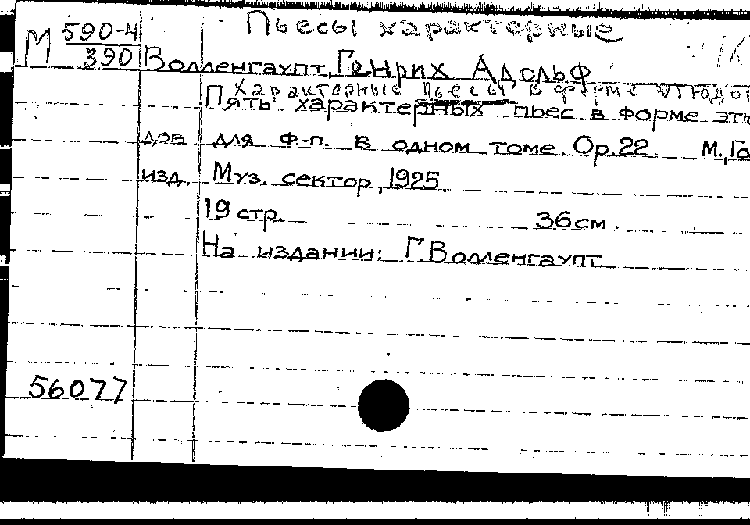 Пьесы характерные
М 590-4
390
Волленгаупт, Генрих Адольф
Характерные пьесы в форме этюдов
Пять характерных пьес в форме этю
дов для ф-п. в одном томе. Ор.22 М., Го
изд. Муз. сектор, 1925
19 стр. 36 см.
На издании: Г. Волленгаупт
56077